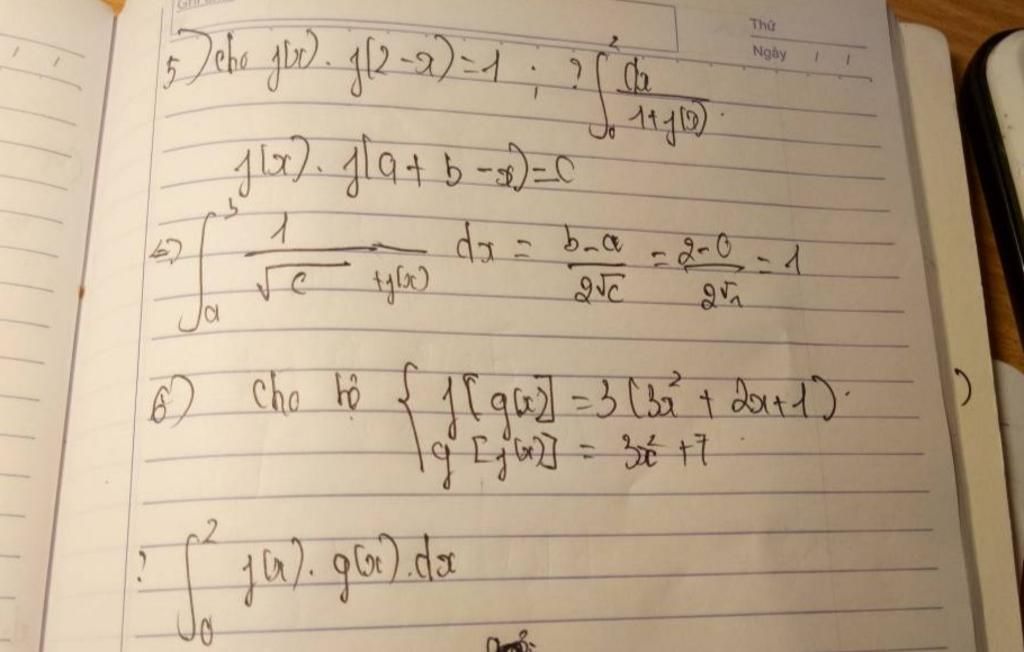 Thứ
Ngày / /
5) Cho f(x) . f(2-x) = 1 ; ? ∫₀² dx/(1+f(x)) .
f(x) . f(a + b - x) = C
=> ∫ₐᵇ 1/(√C + f(x)) dx = (b-a)/(2√C) = (2-0)/(2√1) = 1
6) Cho hệ { f[g(x)] = 3(3x² + 2x + 1) .
g[f(x)] = 3x² + 7 .
? ∫₀² f(x) . g(x) . dx